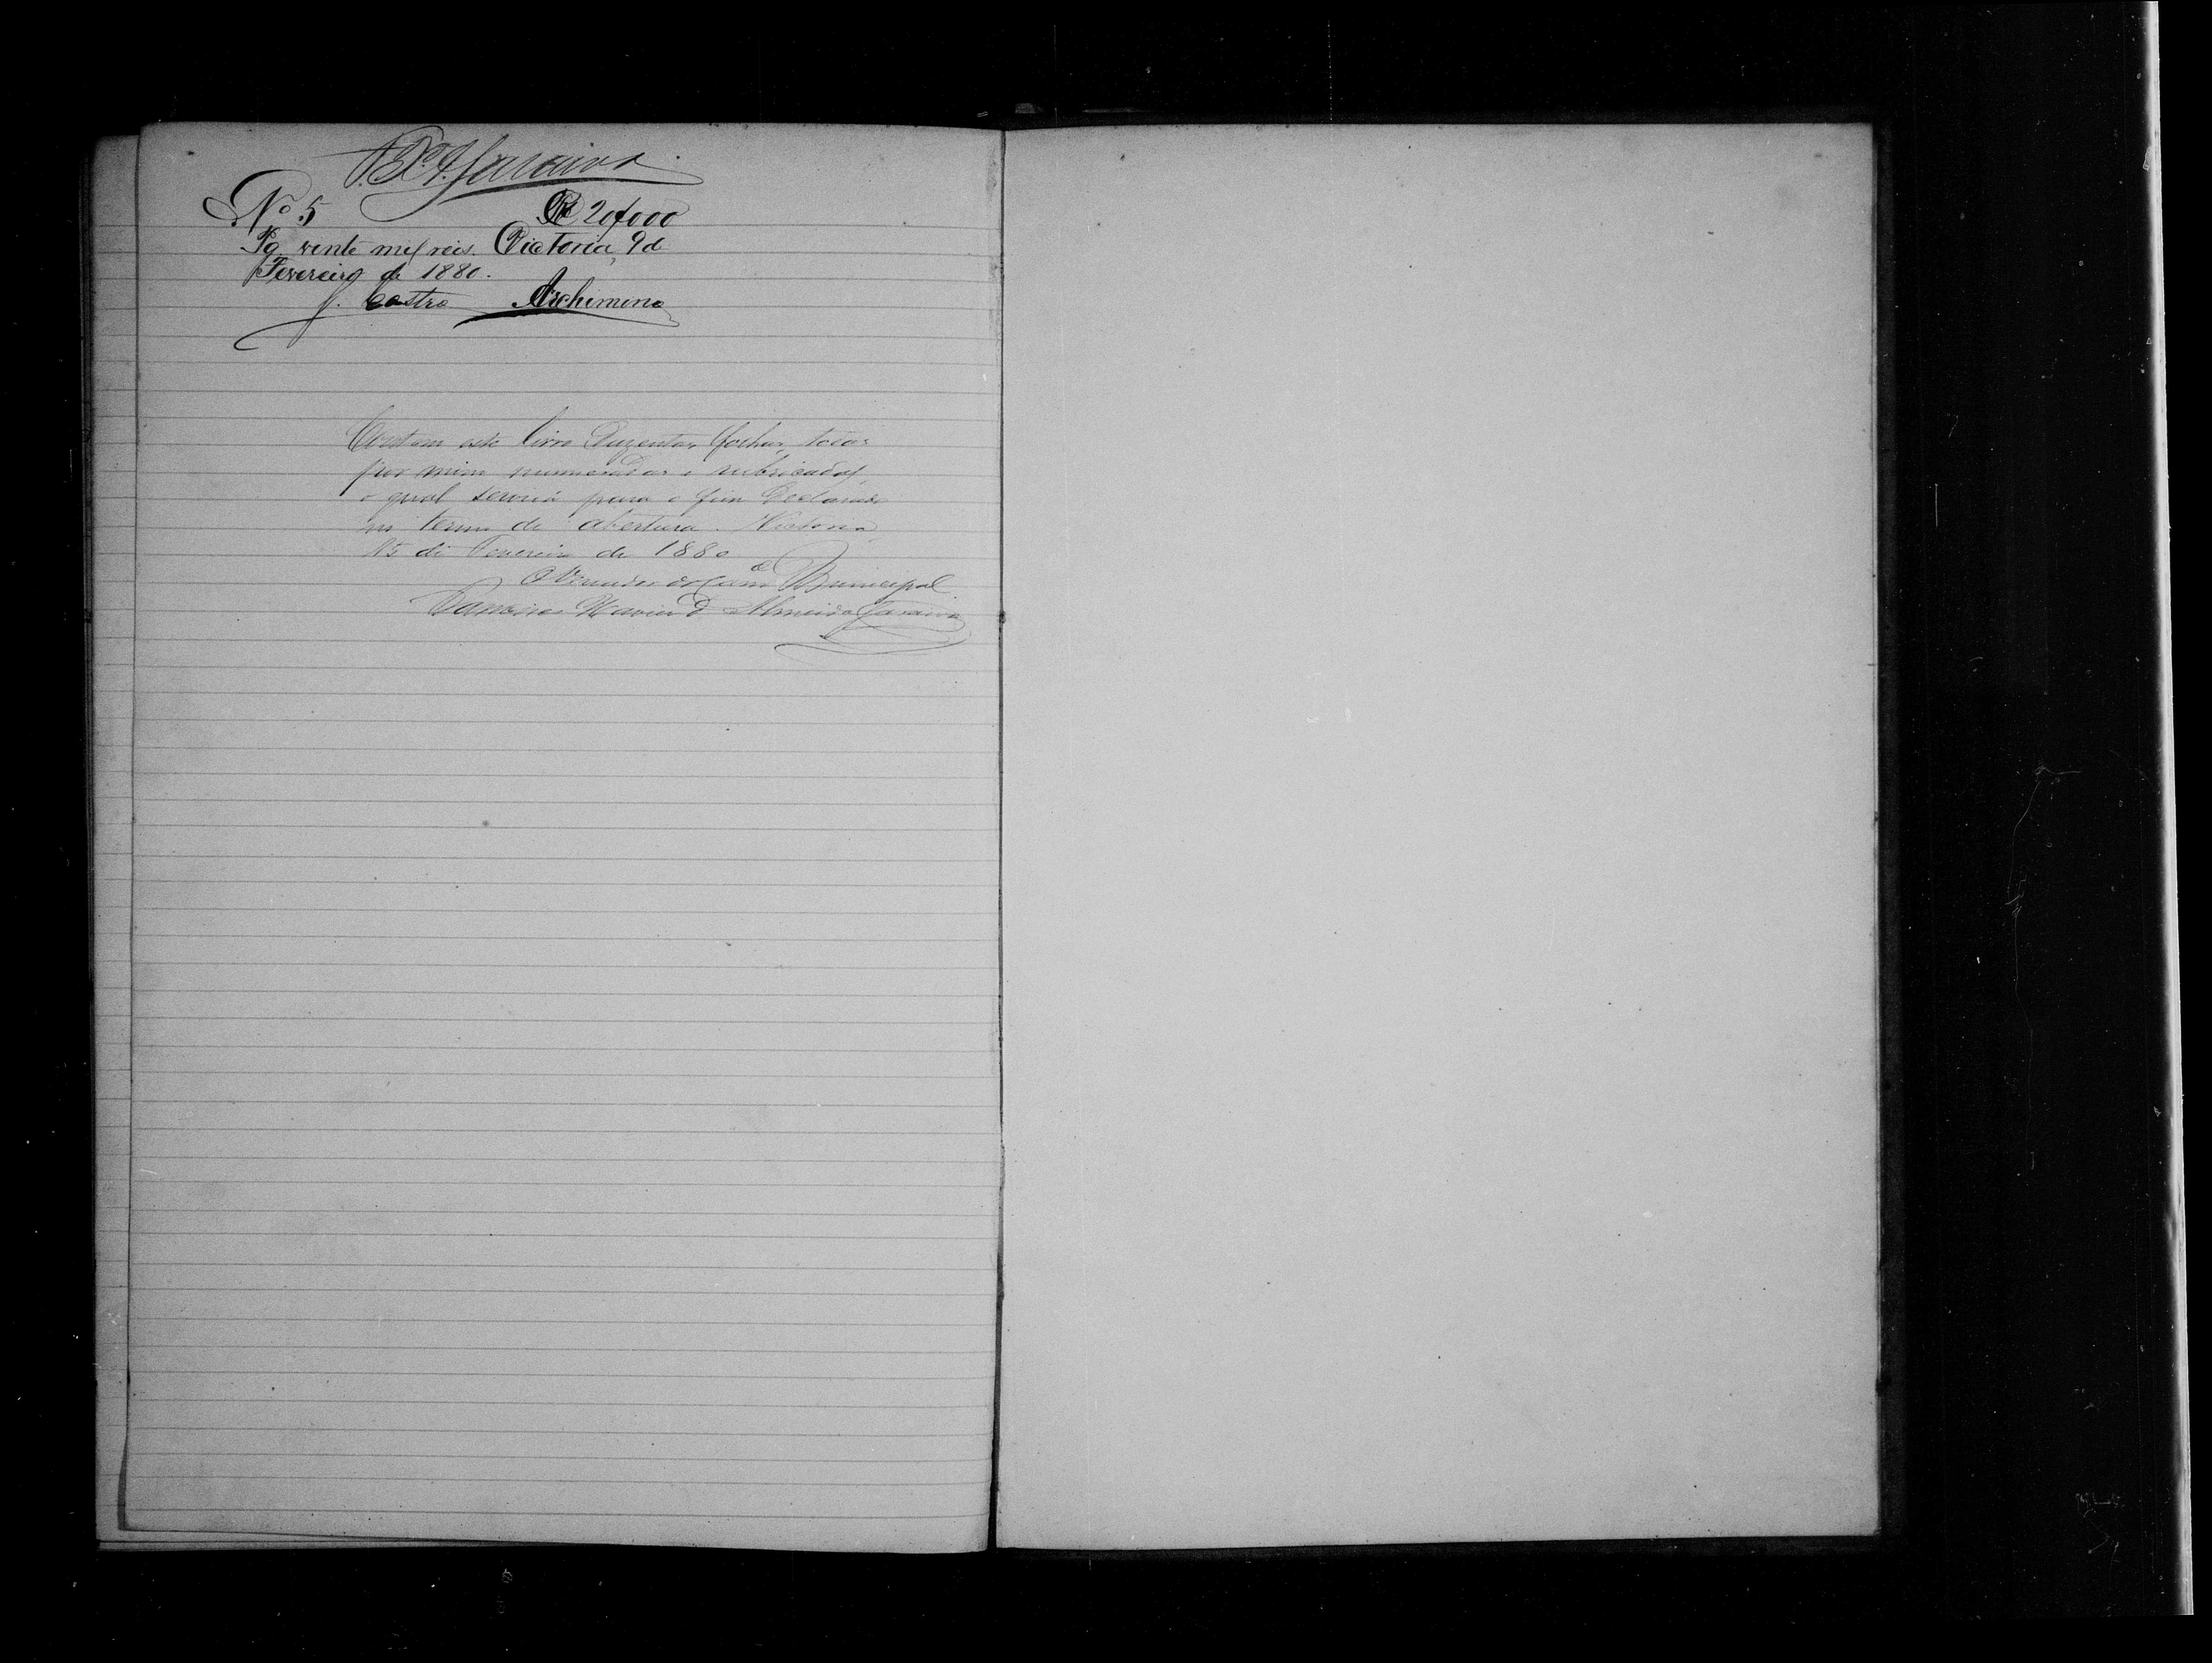 Nº 5 R 20$000
Pg. vente mil reis. Victoria, 9 de
Fevereiro de 1880.
J. Castro Archimino
Contem este livro Duzentas folhas, todas
por mim numeradas e rubricadas,
o qual servirá para o fim declarado
no termo de abertura. Victoria
15 de Fevereiro de 1880
O Vereador da Camª Municipal
Xavier d' Almeida Saraiva